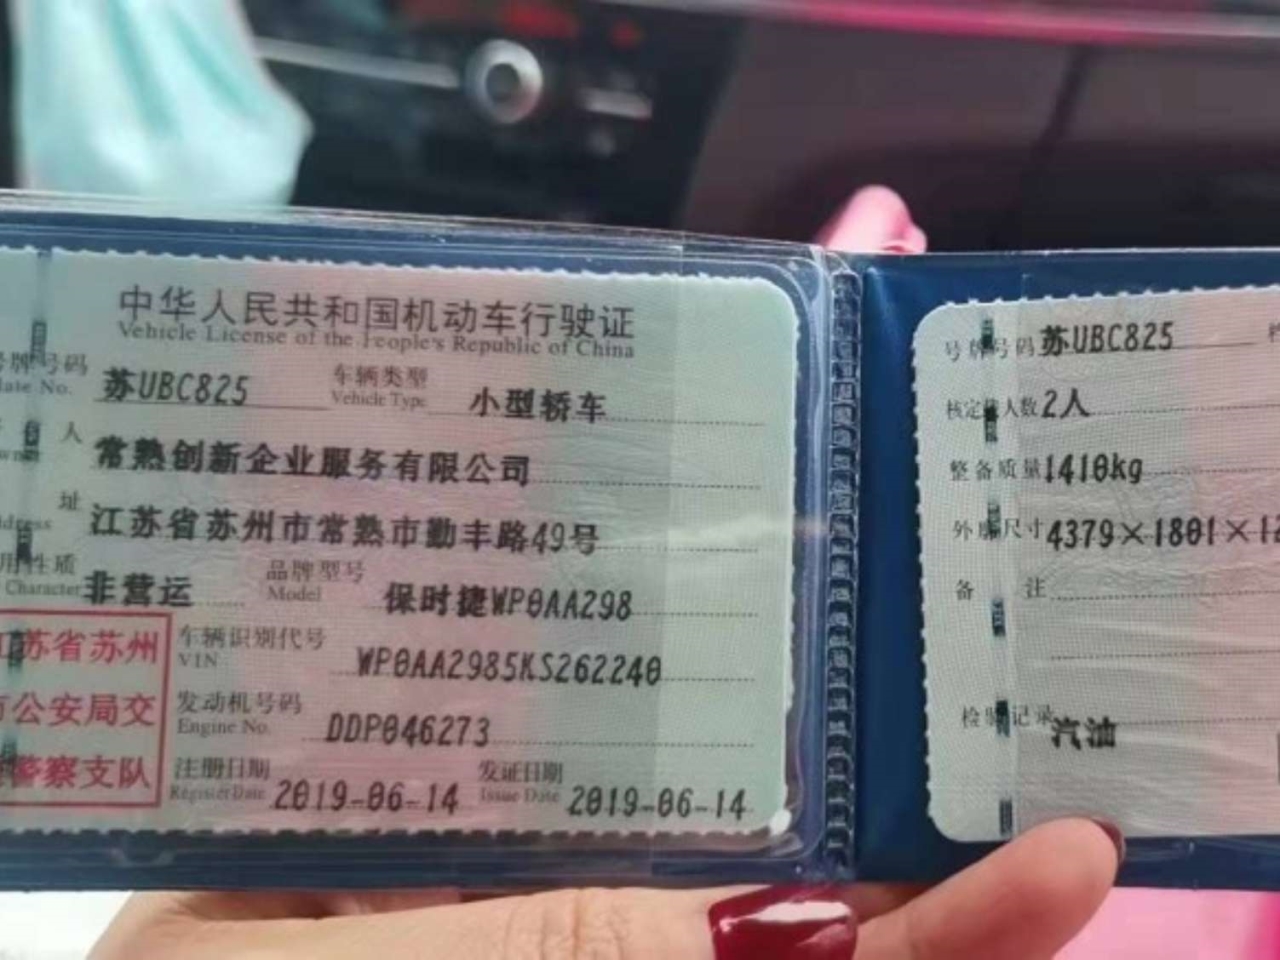 中华人民共和国机动车行驶证
Vehicle License of the People's Republic of China
号牌号码 苏UBC825 车辆类型 小型轿车
Plate No. Vehicle Type
人 常熟创新企业服务有限公司
址 江苏省苏州市常熟市勤丰路49号
Address
用性质 非营运 品牌型号 保时捷WP0AA298
Character Model
江苏省苏州
市公安局交
警察支队
车辆识别代号 WP0AA2985KS262240
VIN
发动机号码 DDP046273
Engine No.
注册日期 2019-06-14 发证日期 2019-06-14
Register Date Issue Date
号牌号码 苏UBC825
核定载人数 2人
整备质量 1410kg
外廓尺寸 4379×1801×12
备 注
检验记录
汽油